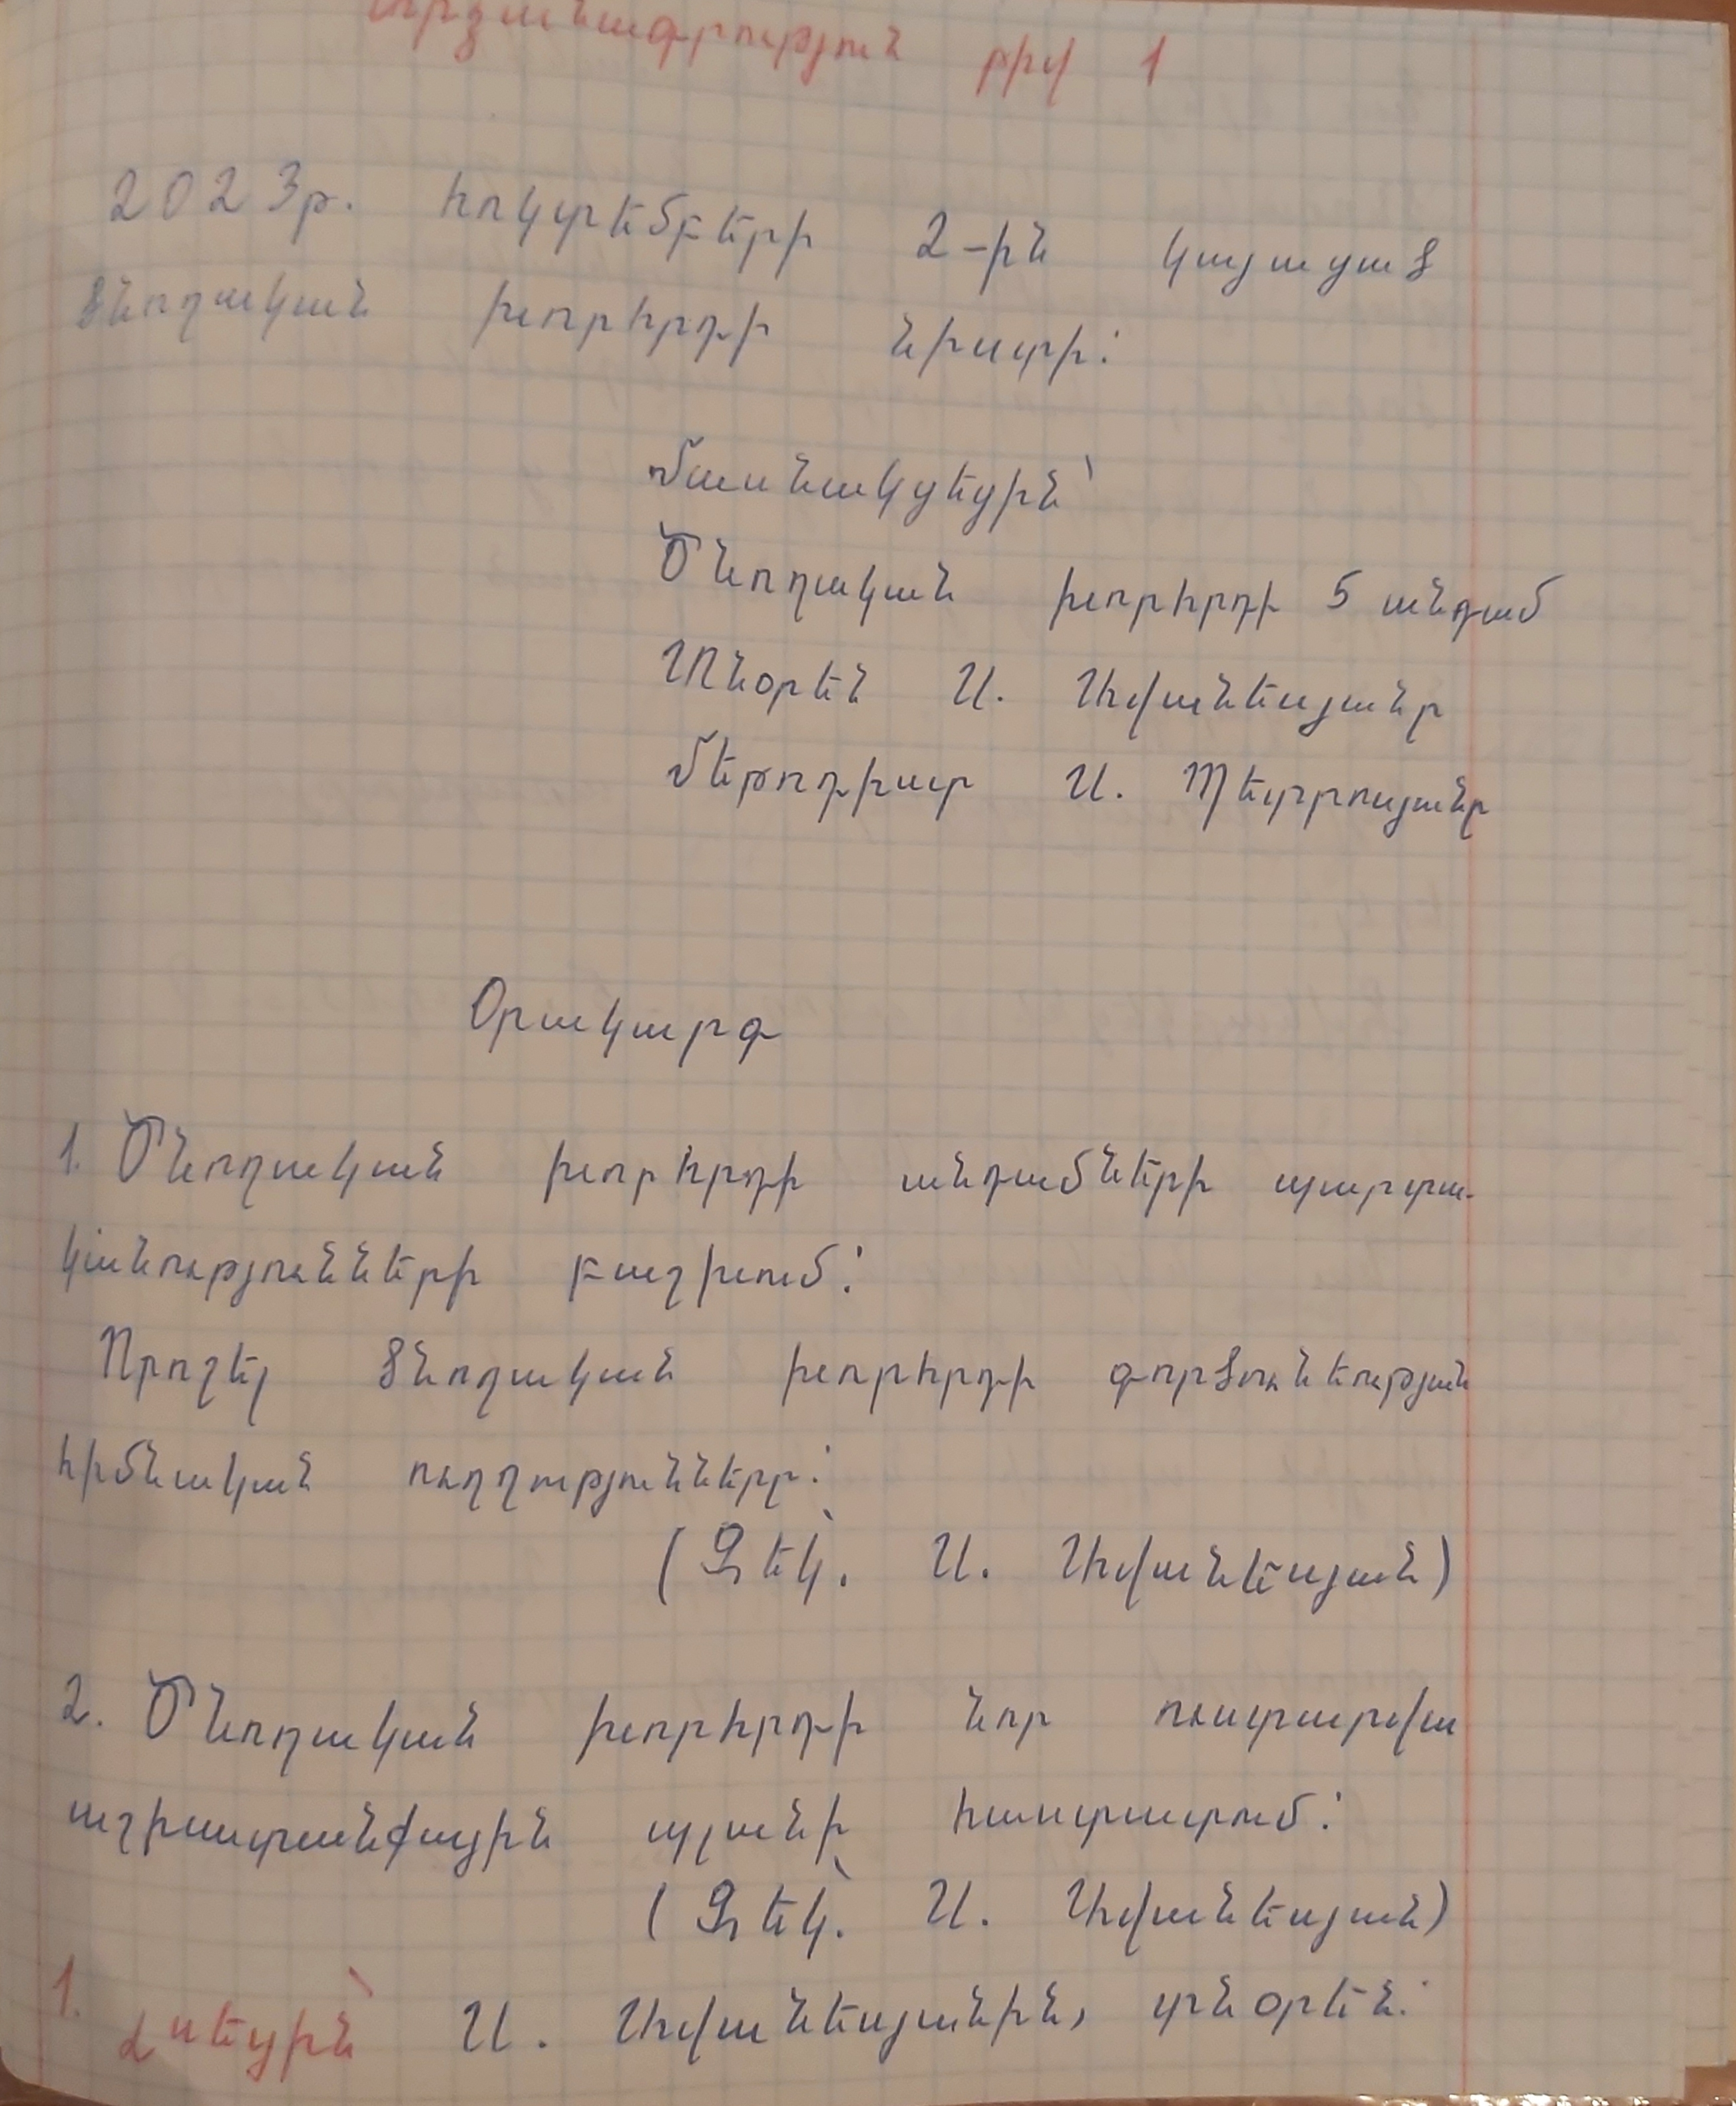 Արձանագրություն թիվ 1
2023թ. հոկտեմբերի 2-ին կայացած
ծնողական խորհրդի նիստի:
Մասնակցեցին՝
Ծնողական խորհրդի 5 անդամ
Տնօրեն Ա. Ավանեսյանը
Մեթոդիստ Ա. Պետրոսյանը
Օրակարգ
1. Ծնողական խորհրդի անդամների պարտա-
կանությունների բաշխում:
Որոշել ծնողական խորհրդի գործունեության
հիմնական ուղղությունները:
(Զեկ. Ա. Ավանեսյան)
2. Ծնողական խորհրդի նոր ուստարվա
աշխատանքային պլանի հաստատում:
(Զեկ. Ա. Ավանեսյան)
1. Լսեցին՝ Ա. Ավանեսյանին, տնօրեն: